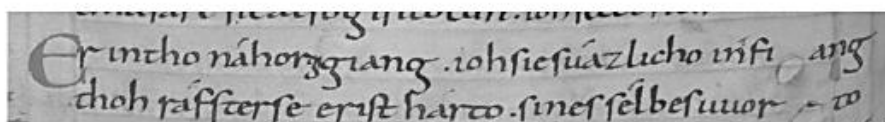 Er intho náhorggiang . ioh sie suázlicho infi ang
thoh ráfsterse erist hárto . sines sélbes uuor to